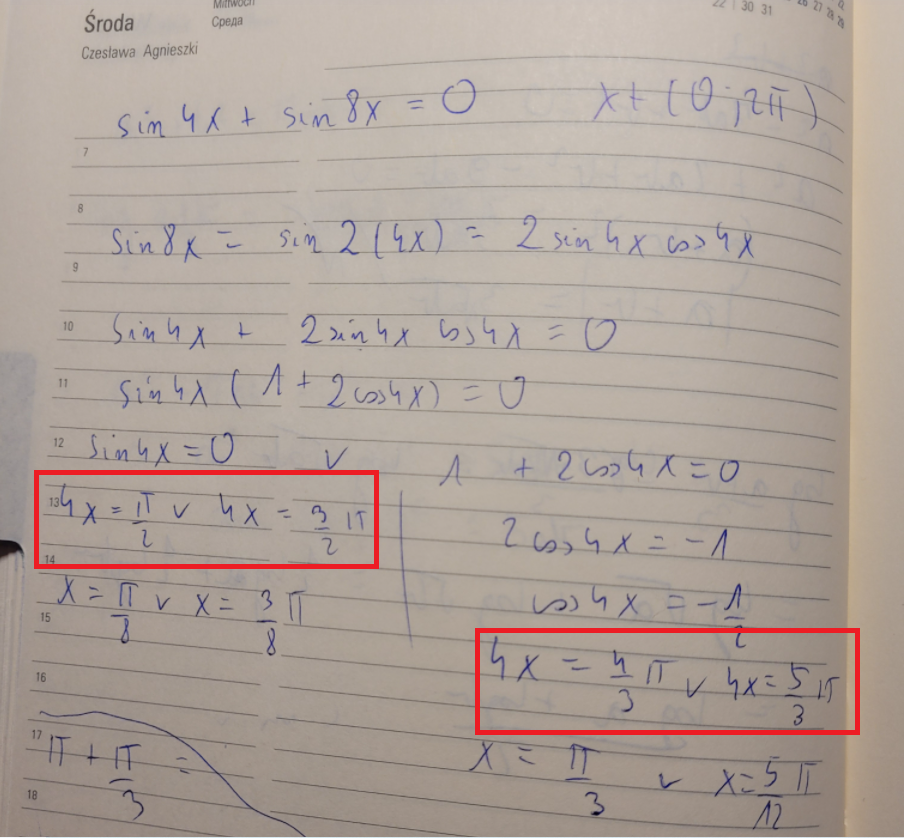 Mittwoch
Środa
Среда
Czesława Agnieszki
22 30 31
26 27 28 29
sin 4x + sin 8x = 0 x + (0 ; 2π)
7
8
sin 8x = sin 2(4x) = 2 sin 4x cos 4x
9
10 sin 4x + 2 sin 4x cos 4x = 0
11 sin 4x (1 + 2 cos 4x) = 0
12 sin 4x = 0 v 1 + 2 cos 4x = 0
13 4x = π/2 v 4x = 3/2 π 2 cos 4x = -1
14
x = π/8 v x = 3/8 π cos 4x = -1/2
15
16 4x = 4/3 π v 4x = 5/3 π
17 π + π/3 = x = π/3 v x = 5/12 π
18